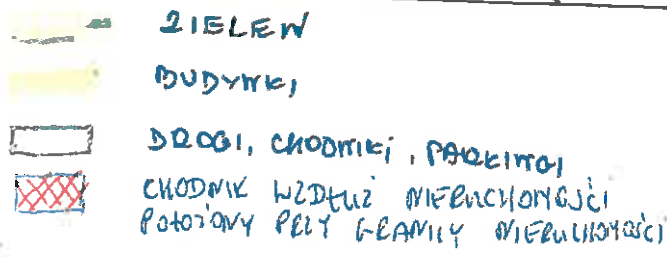 ZIELEŃ
BUDYNKI
DROGI, CHODNIKI, PARKINGI
CHODNIK WZDŁUŻ NIERUCHOMOŚCI
POŁOŻONY PRZY GRANICY NIERUCHOMOŚCI